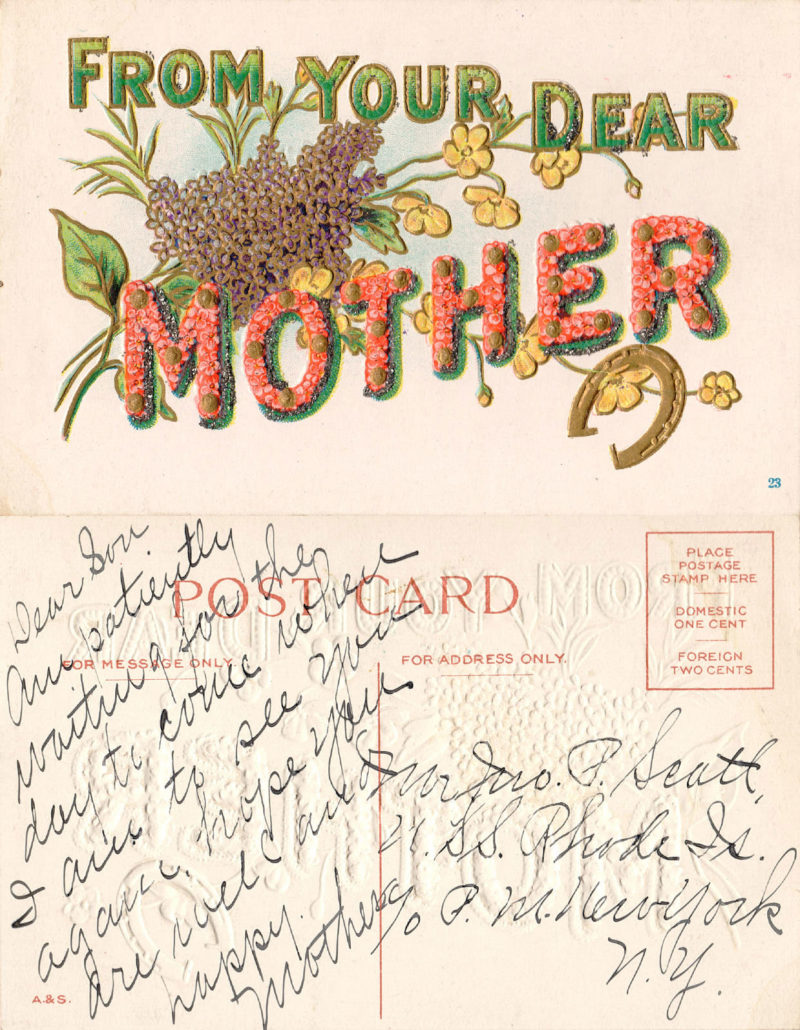 FROM YOUR DEAR
MOTHER
23
POST CARD
FOR MESSAGE ONLY.
FOR ADDRESS ONLY.
PLACE
POSTAGE
STAMP HERE
DOMESTIC
ONE CENT
FOREIGN
TWO CENTS
Dear Son
Am patiently
waiting for the
day to come when
I am to see you
again. hope you
are well and
happy.
Mother
Mr Jno. P. Scatt,
U.S.S. Rhode Is.
c/o P. M. New York
N.Y.
A. & S.